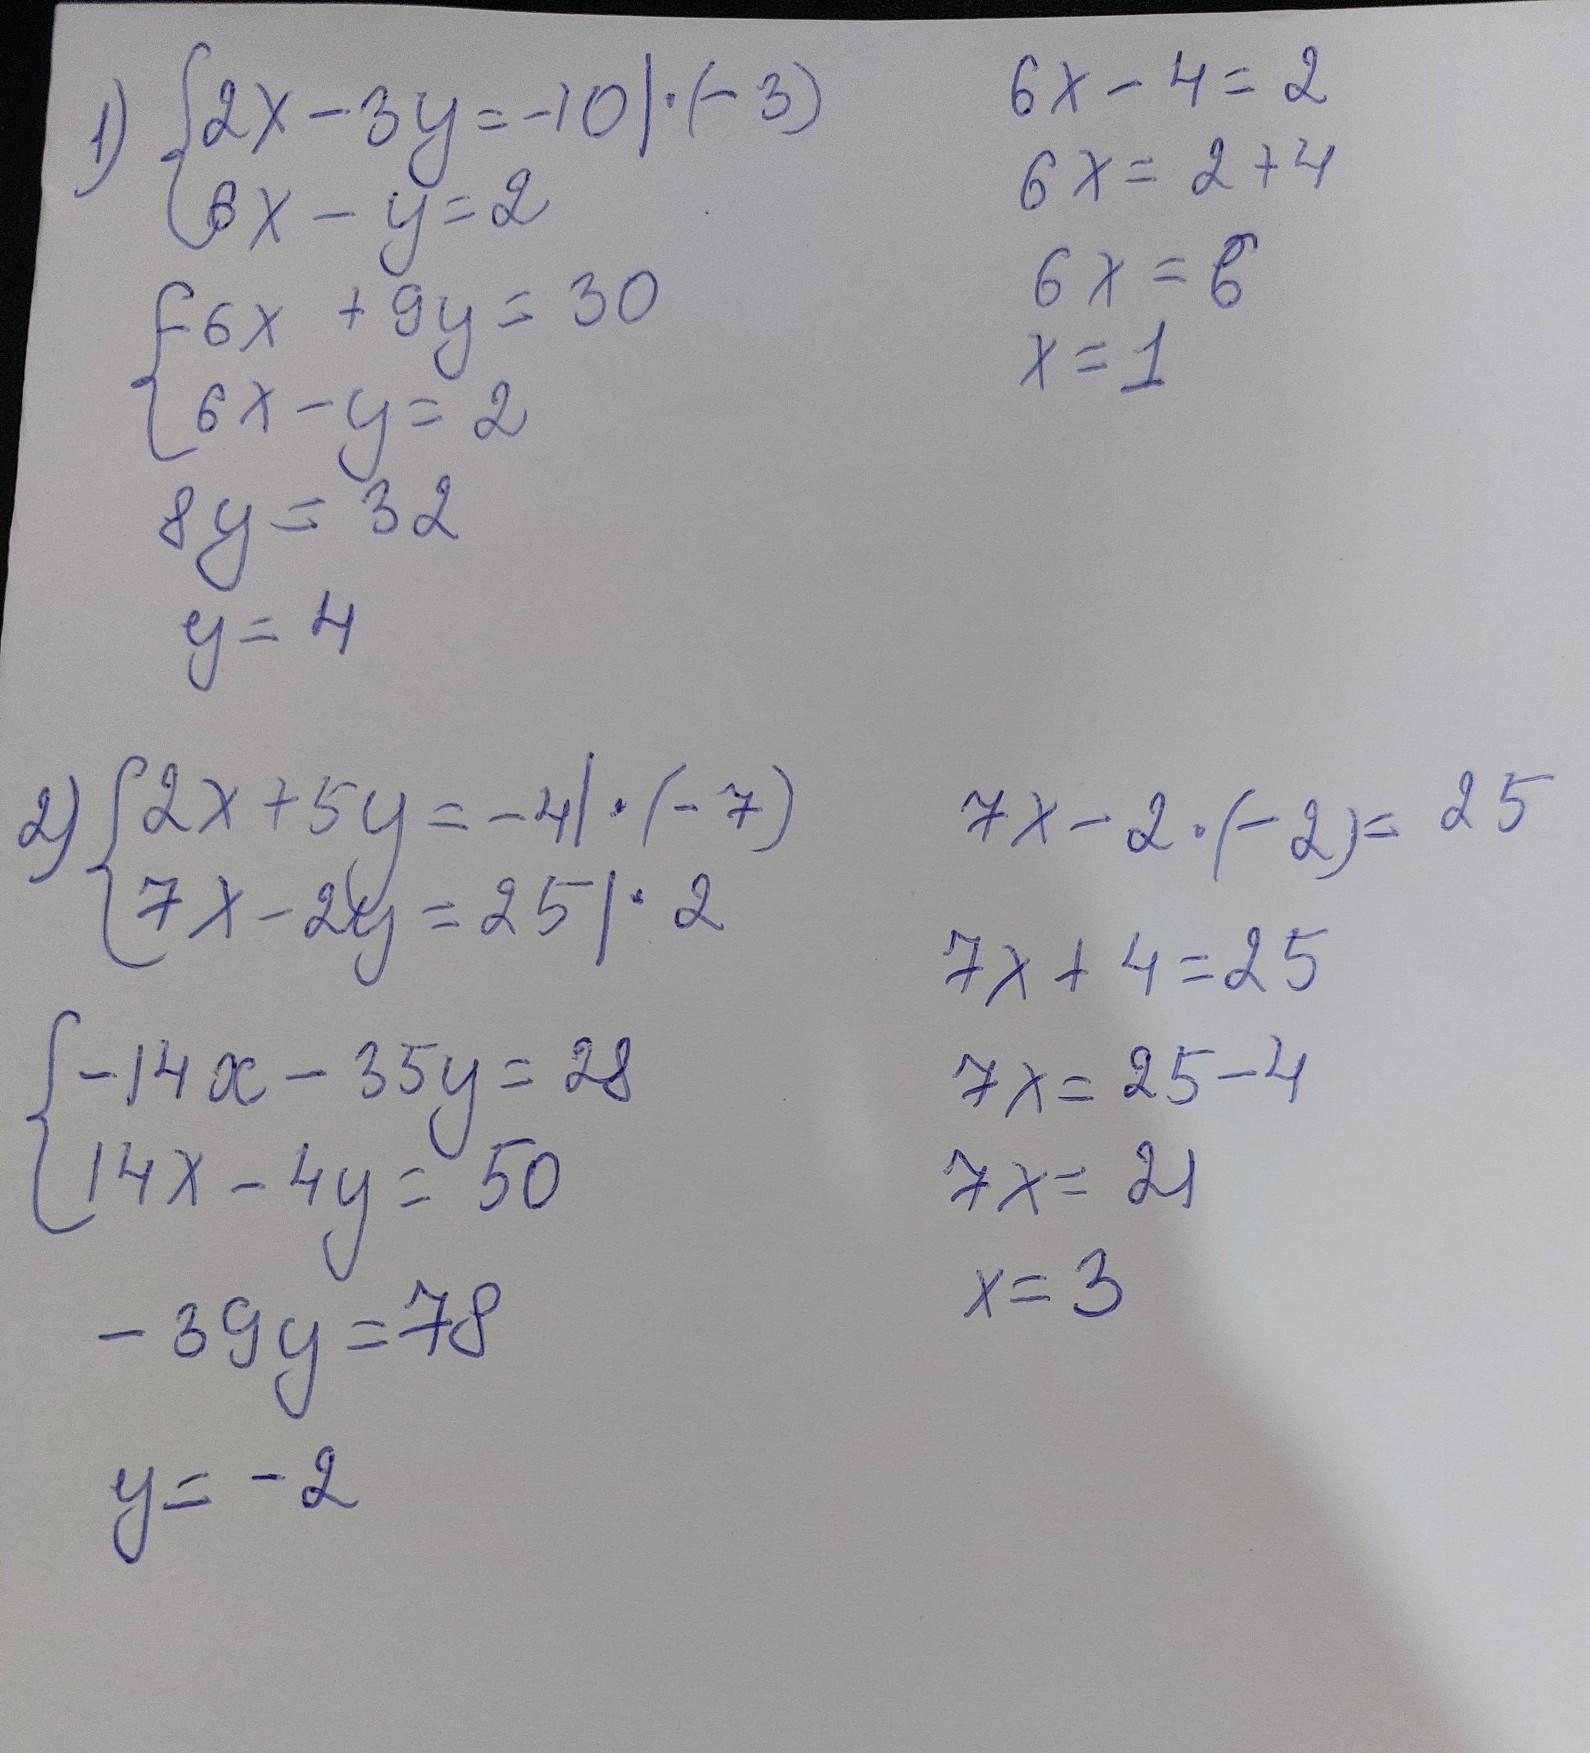 1) {2x - 3y = -10 | · (-3)
6x - y = 2
{-6x + 9y = 30
6x - y = 2
8y = 32
y = 4
6x - 4 = 2
6x = 2 + 4
6x = 6
x = 1
2) {2x + 5y = -4 | · (-7)
7x - 2y = 25 | · 2
{-14x - 35y = 28
14x - 4y = 50
-39y = 78
y = -2
7x - 2 · (-2) = 25
7x + 4 = 25
7x = 25 - 4
7x = 21
x = 3